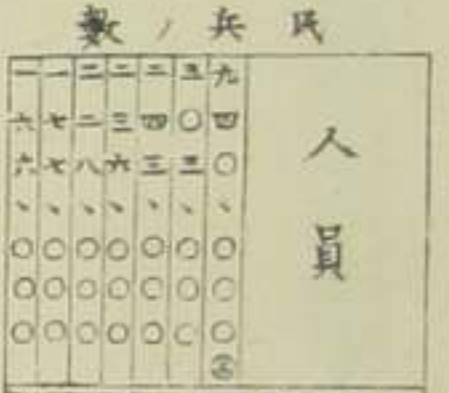 民兵ノ數
人員
九四〇、〇〇〇
三〇三、〇〇〇
二四三、〇〇〇
二三六、〇〇〇
二二八、〇〇〇
一七七、〇〇〇
一六六、〇〇〇